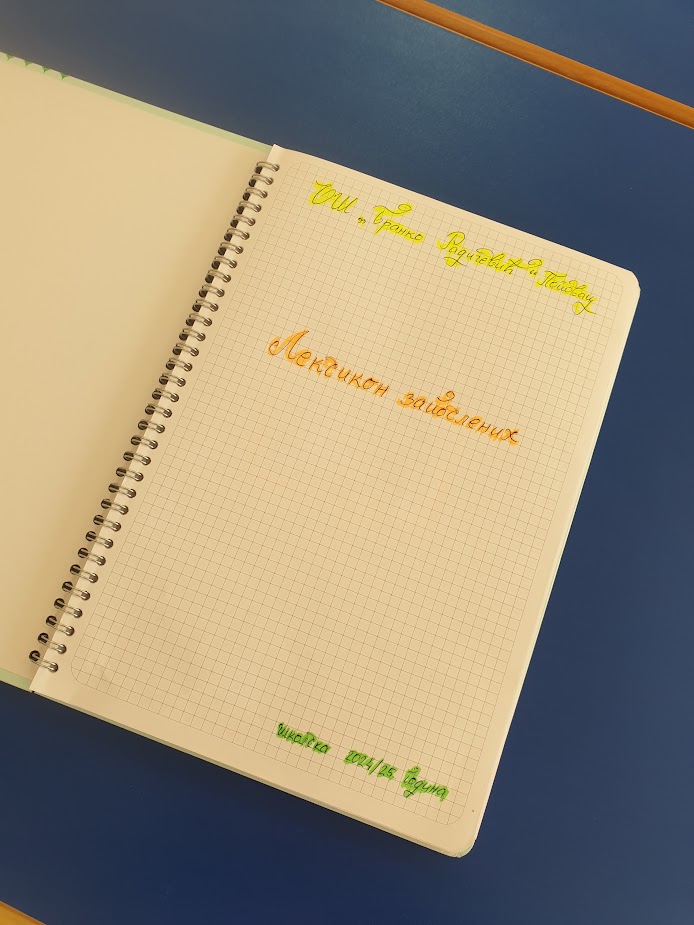 ОШ „Бранко Радичевић“ Поповац
Лексикон запослених
школска 2024/25. година